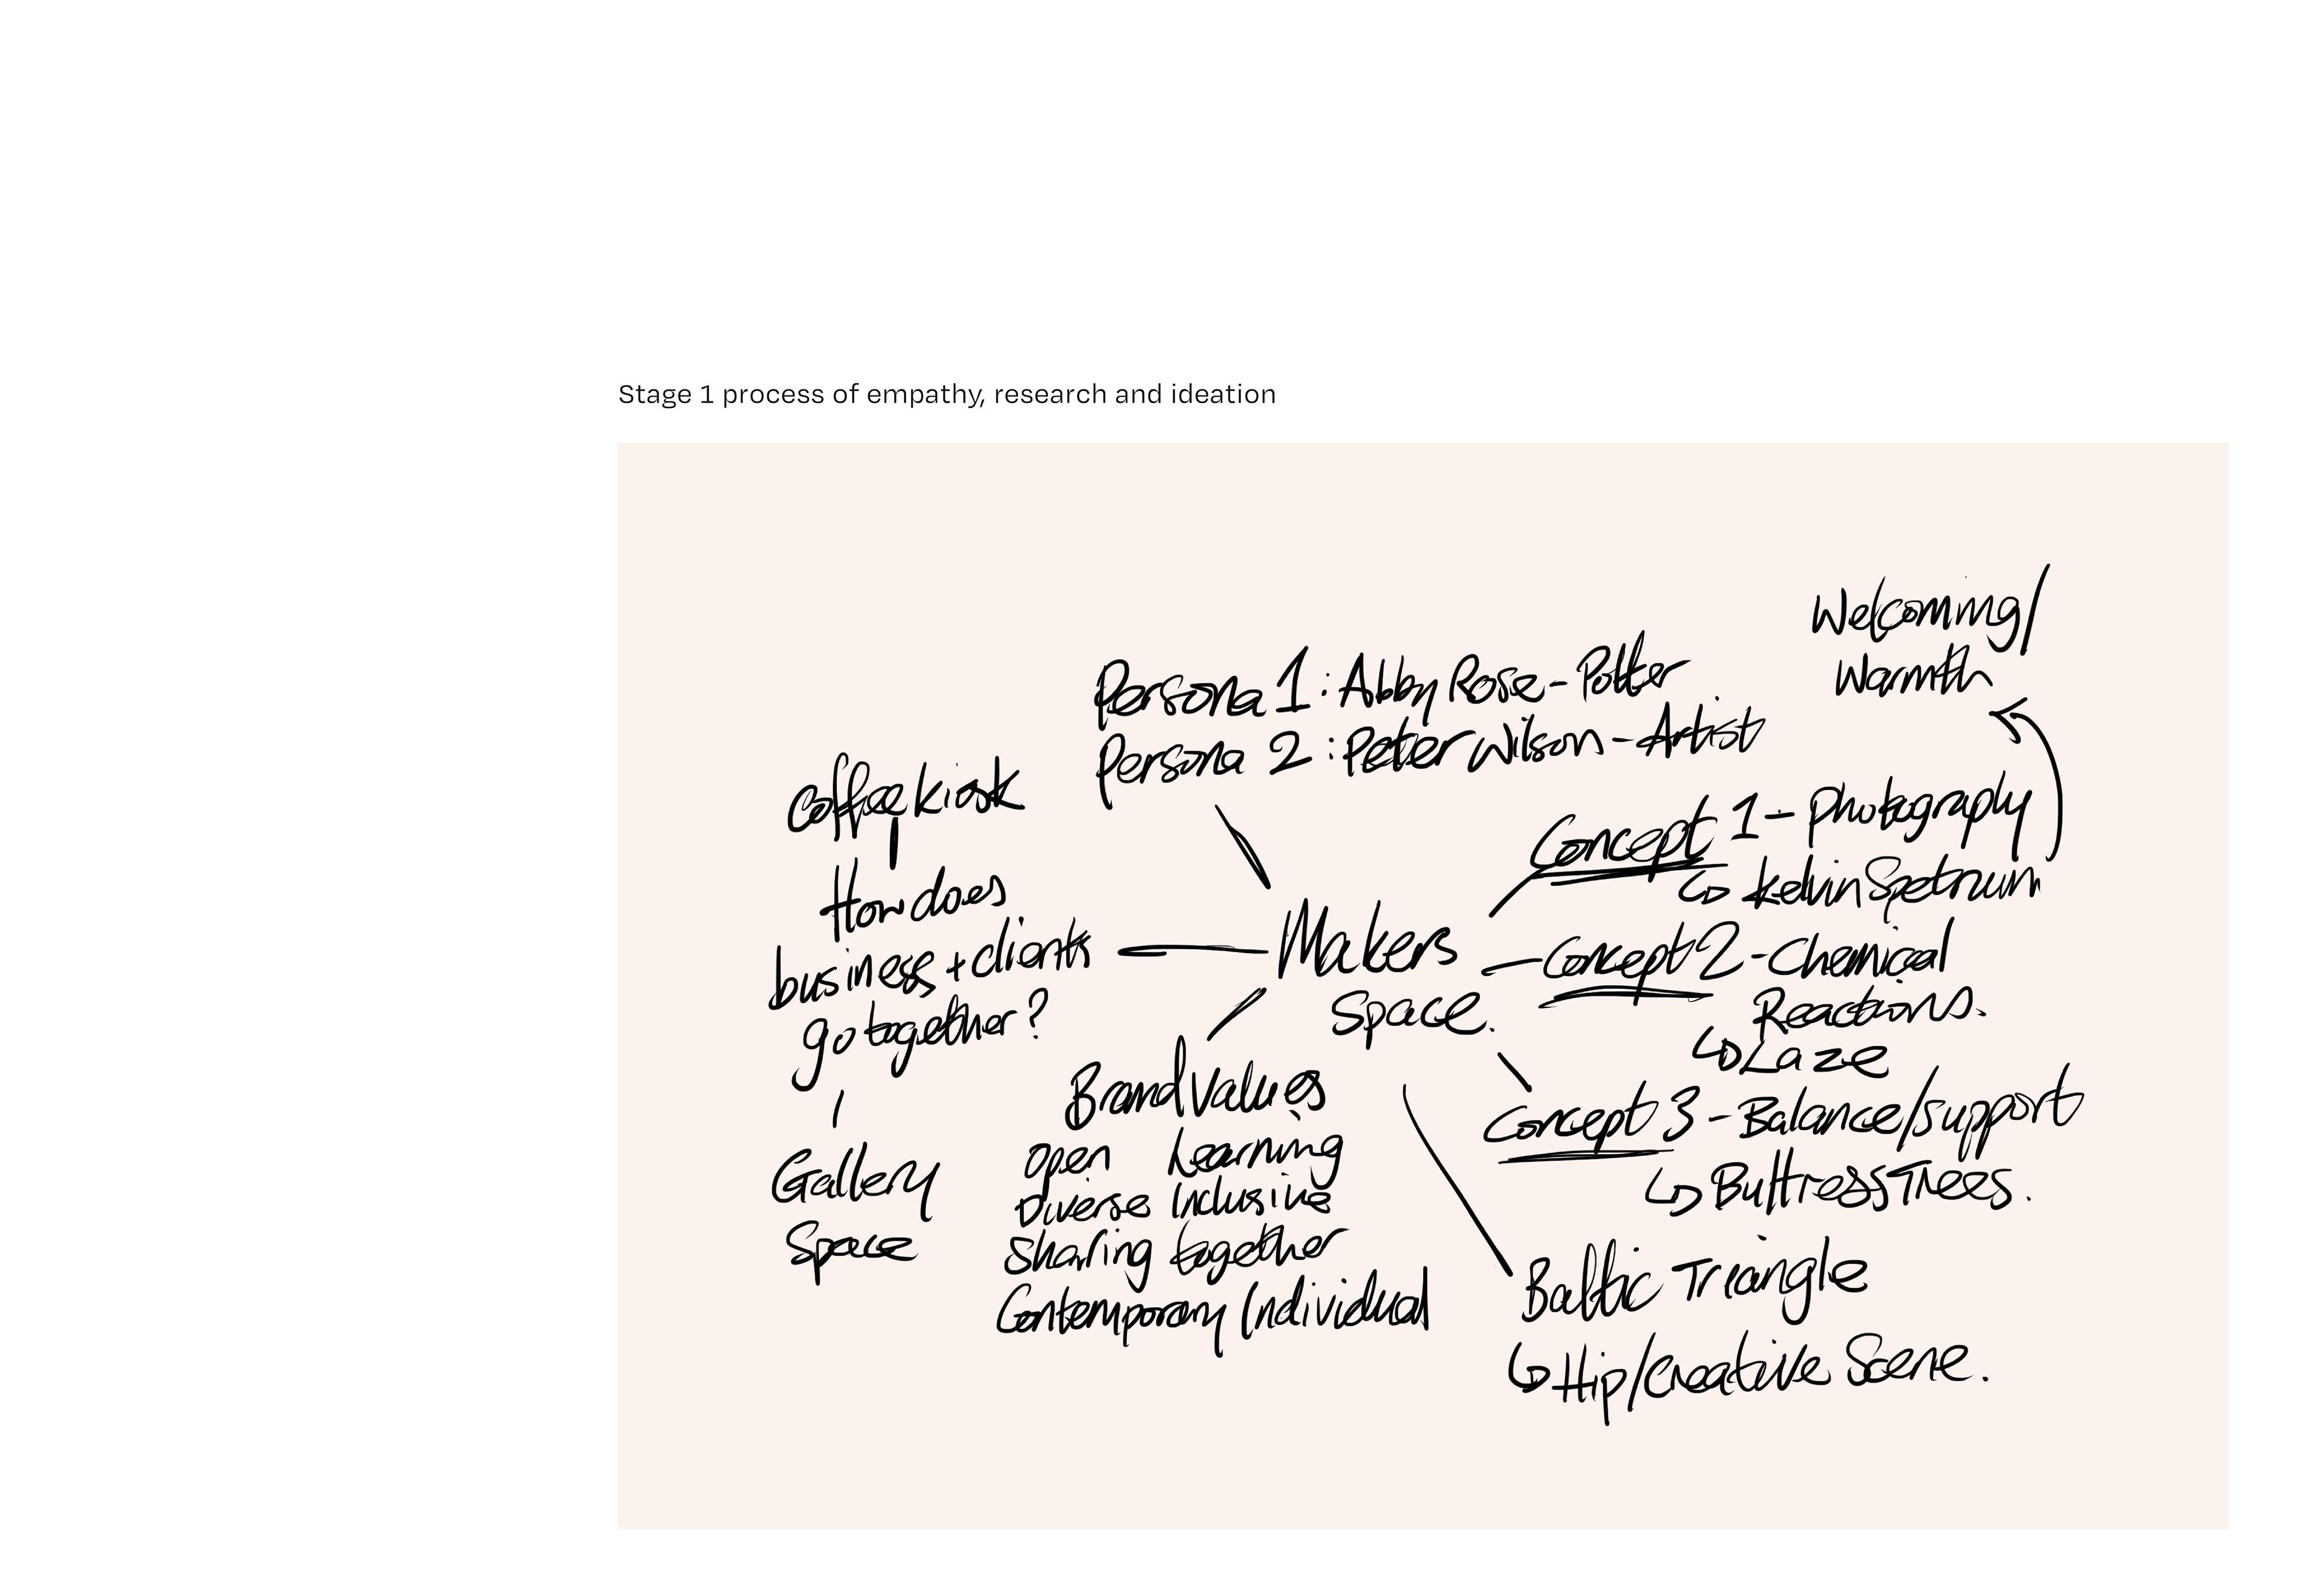 Stage 1 process of empathy, research and ideation
Welcoming/
Warmth
Persona 1: Abby Rose - Potter
Persona 2: Peter Wilson - Artist
Coffee kiosk
How does
business + clients
go together?
Gallery
Space
Makers
Space.
Concept 1 - Photography
↳ Kelvin Spetrum
Concept 2 - Chemical
Reactions.
↳ Laze
Concept 3 - Balance/support
↳ Buttress Trees.
Brand Values
Open Learning
Diverse Inclusive
Sharing together
Contemporary Individual
Baltic Triangle
↳ Hip/Creative Scene.